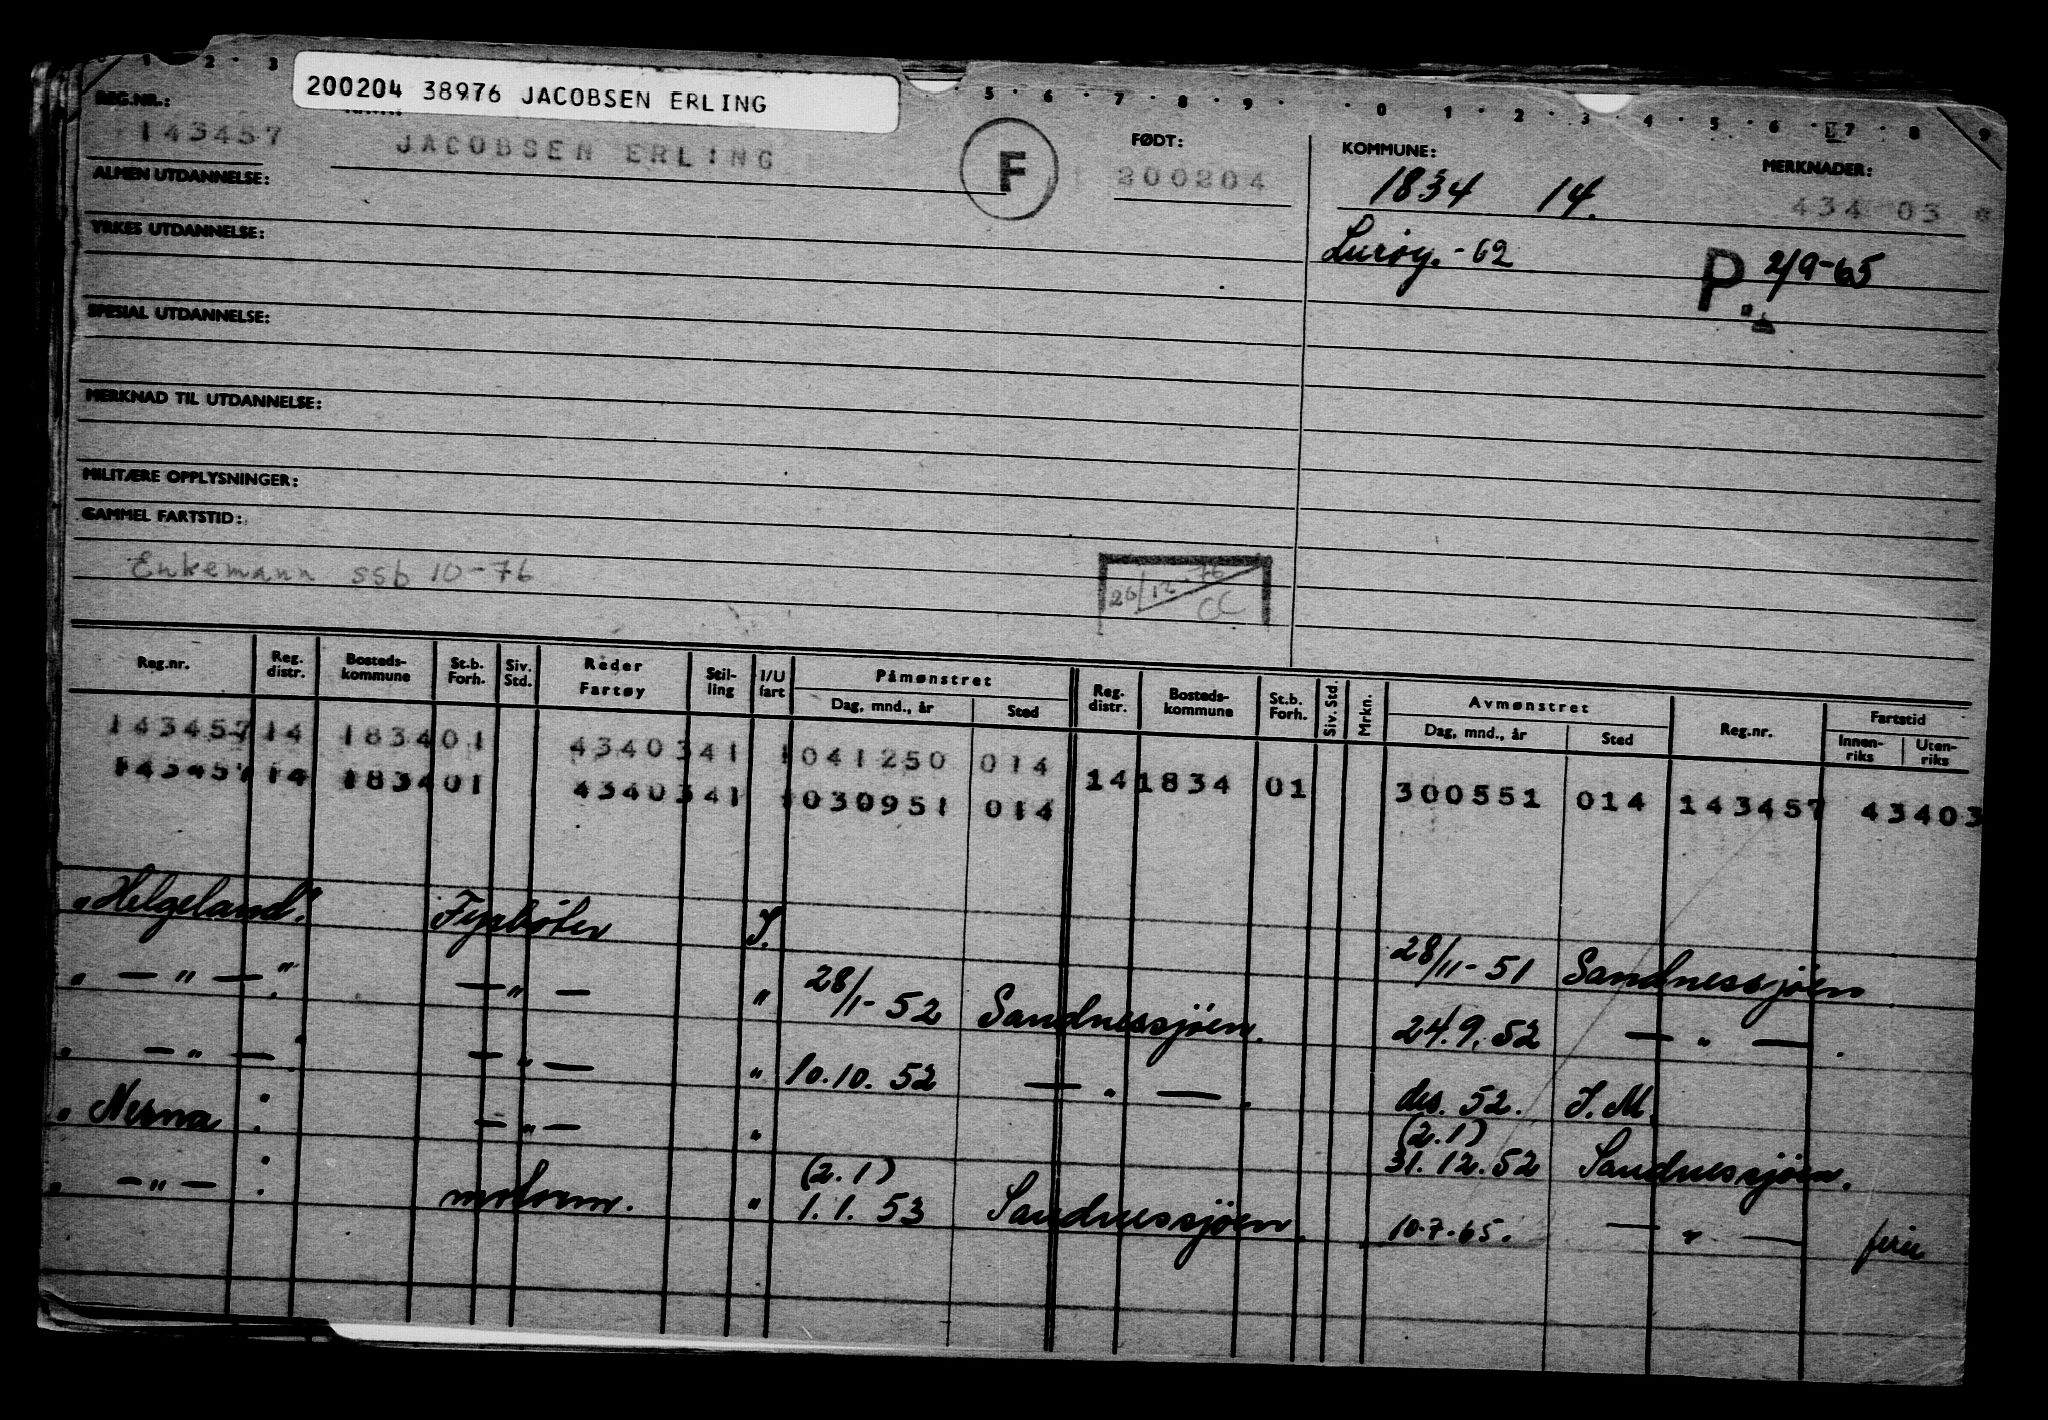 1 · 2 · 3
5 · 6 · 7 · 8 · 9 · 0 · 1 · 2 · 3 · 4 · 5 · 6 · 7 · 8 · 9
200204 38976 JACOBSEN ERLING
REG.NR.:
143457
JACOBSEN ERLING
F
FØDT:
200204
KOMMUNE:
1834 14.
MERKNADER:
434 03
ALMEN UTDANNELSE:
Lurøy. - 62
P. 2/9-65
YRKES UTDANNELSE:
SPESIAL UTDANNELSE:
MERKNAD TIL UTDANNELSE:
MILITÆRE OPPLYSNINGER:
GAMMEL FARTSTID:
Enkemann ssb 10-76
26/12-76 CC
Reg.nr. Reg. distr. Bosteds-kommune St.b. Forh. Siv. Std. Reder Fartøy Stil-ling I/U fart Påmønstret Dag, mnd., år Sted Reg. distr. Bosteds-kommune St.b. Forh. Siv. Std. Mrkn. Avmønstret Dag, mnd., år Sted Reg.nr. Fartstid Innen-riks Uten-riks
143457 14 1834 01 4340341 1 041250 014 14 1834 01 300551 014 143457 43403
143457 14 1834 01 4340341 1 030951 014
"Helgeland". Fyrbøter I. 28/11-51 Sandnessjøen.
" — " — ". — " — " 28/1-52 Sandnessjøen. 24.9.52 — " — .
" — " — ". — " — " 10.10.52 — " — . des. 52. I.M.
"Nesna". — " — " (2.1) 31.12.52 Sandnessjøen.
" — " — ". motorm. " (2.1) 1.1.53 Sandnessjøen. 10.7.65. — " — ferie